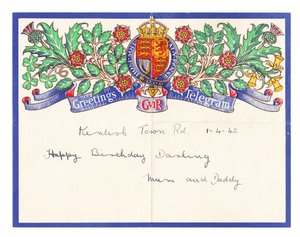 Greetings Telegram
GviR
Kentish Town Rd. 1.4.42
Happy Birthday Darling
Mum and Daddy